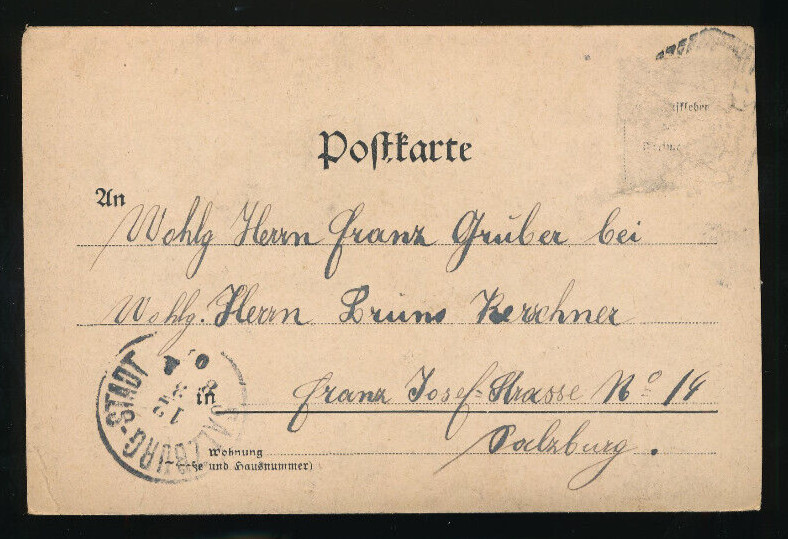 Postkarte
An
Wohlg Herrn Franz Gruber bei
Wohlg. Herrn Bruno Kerschner
in Franz Josef-Strasse Nº 14
Salzburg.
Wohnung
und Hausnummer)
SALZBURG-STADT